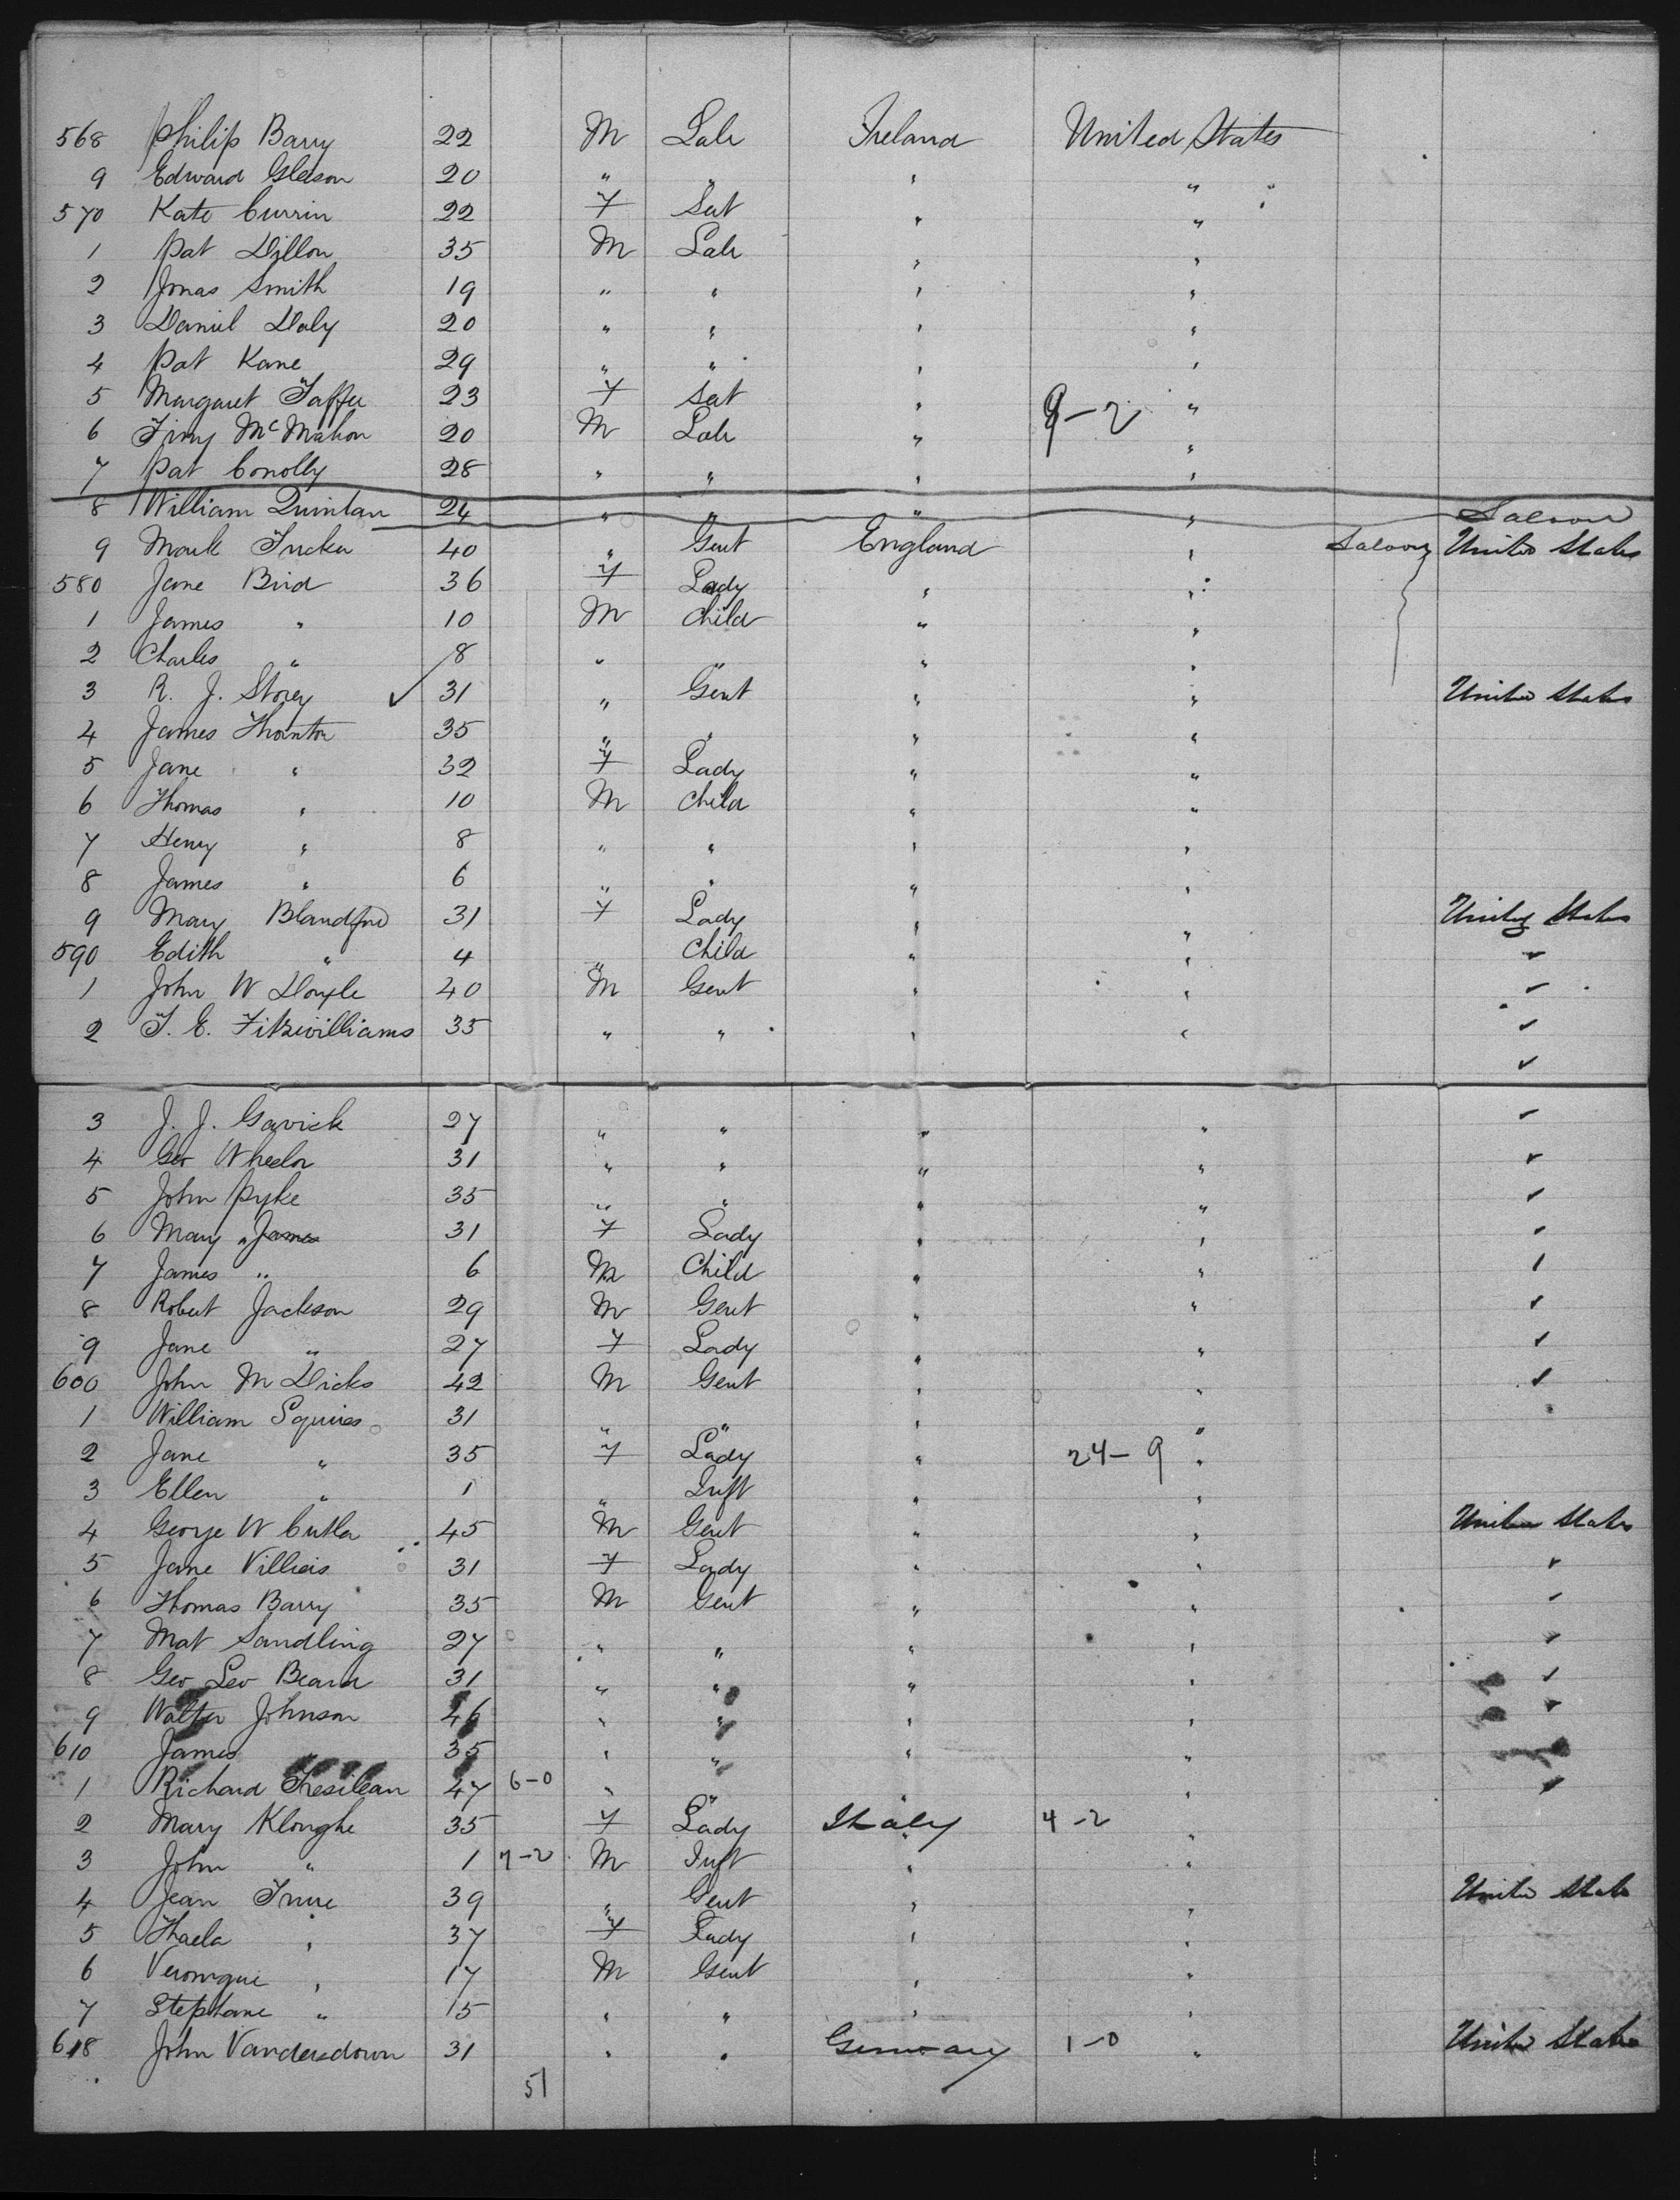 568 Philip Barry 22 M Lab Ireland United States
9 Edward Gleason 20 " " " "
570 Kate Currin 22 F Sert " "
1 Pat Dillon 35 M Lab " "
2 Jonas Smith 19 " " " "
3 Daniel Daly 20 " " " "
4 Pat Kane 29 " " " "
5 Margaret Taffee 23 F Sert " "
9-2
6 Timy McMahon 20 M Lab " "
7 Pat Conolly 28 " " " "
8 William Quinlan 24 " " " " Saloon
9 Mark Tucker 40 " Gent England " Saloon United States
580 Jane Bird 36 F Lady " "
1 James " 10 M Child " "
2 Charles " 8 " " " "
3 R. J. Storey 31 " Gent " " United States
4 James Thornton 35 " " " "
5 Jane " 32 F Lady " "
6 Thomas " 10 M Child " "
7 Henry " 8 " " " "
8 James " 6 " " " "
9 Mary Blandford 31 F Lady " " United States
590 Edith " 4 " Child " "
1 John W Doyle 40 M Gent " "
2 T. E. Fitzwilliams 35 " " " "
3 J. J. Gavick 27 " " " "
4 Geo Wheeler 31 " " " "
5 John Pyke 35 " " " "
6 Mary " James 31 F Lady " "
7 James " 6 M Child " "
8 Robert Jackson 29 M Gent " "
9 Jane " 27 F Lady " "
600 John M Dicks 42 M Gent " "
1 William Squires 31 " " " "
2 Jane " 35 F Lady " 24-9 "
3 Ellen " 1 " Inft " "
4 George W Cutler 45 M Gent " " United States
5 Jane Villiers 31 F Lady " "
6 Thomas Barry 35 M Gent " "
7 Mat Sandling 27 " " " "
8 Geo Leo Beard 31 " " " "
9 Walter Johnson 46 " " " "
610 James " 35 " " " "
1 Richard Tresilean 47 6-0 " " " "
2 Mary Klonghe 35 F Lady Italy 4-2 "
3 John " 1 7-2 M Inft " "
4 Jean 39 " Gent " " United States
5 Thaela " 37 F Lady " "
6 Veronique " 17 M Gent " "
7 Stephane " 15 " " " "
618 John Vandersdown 31 " " Germany 1-0 " United States
51